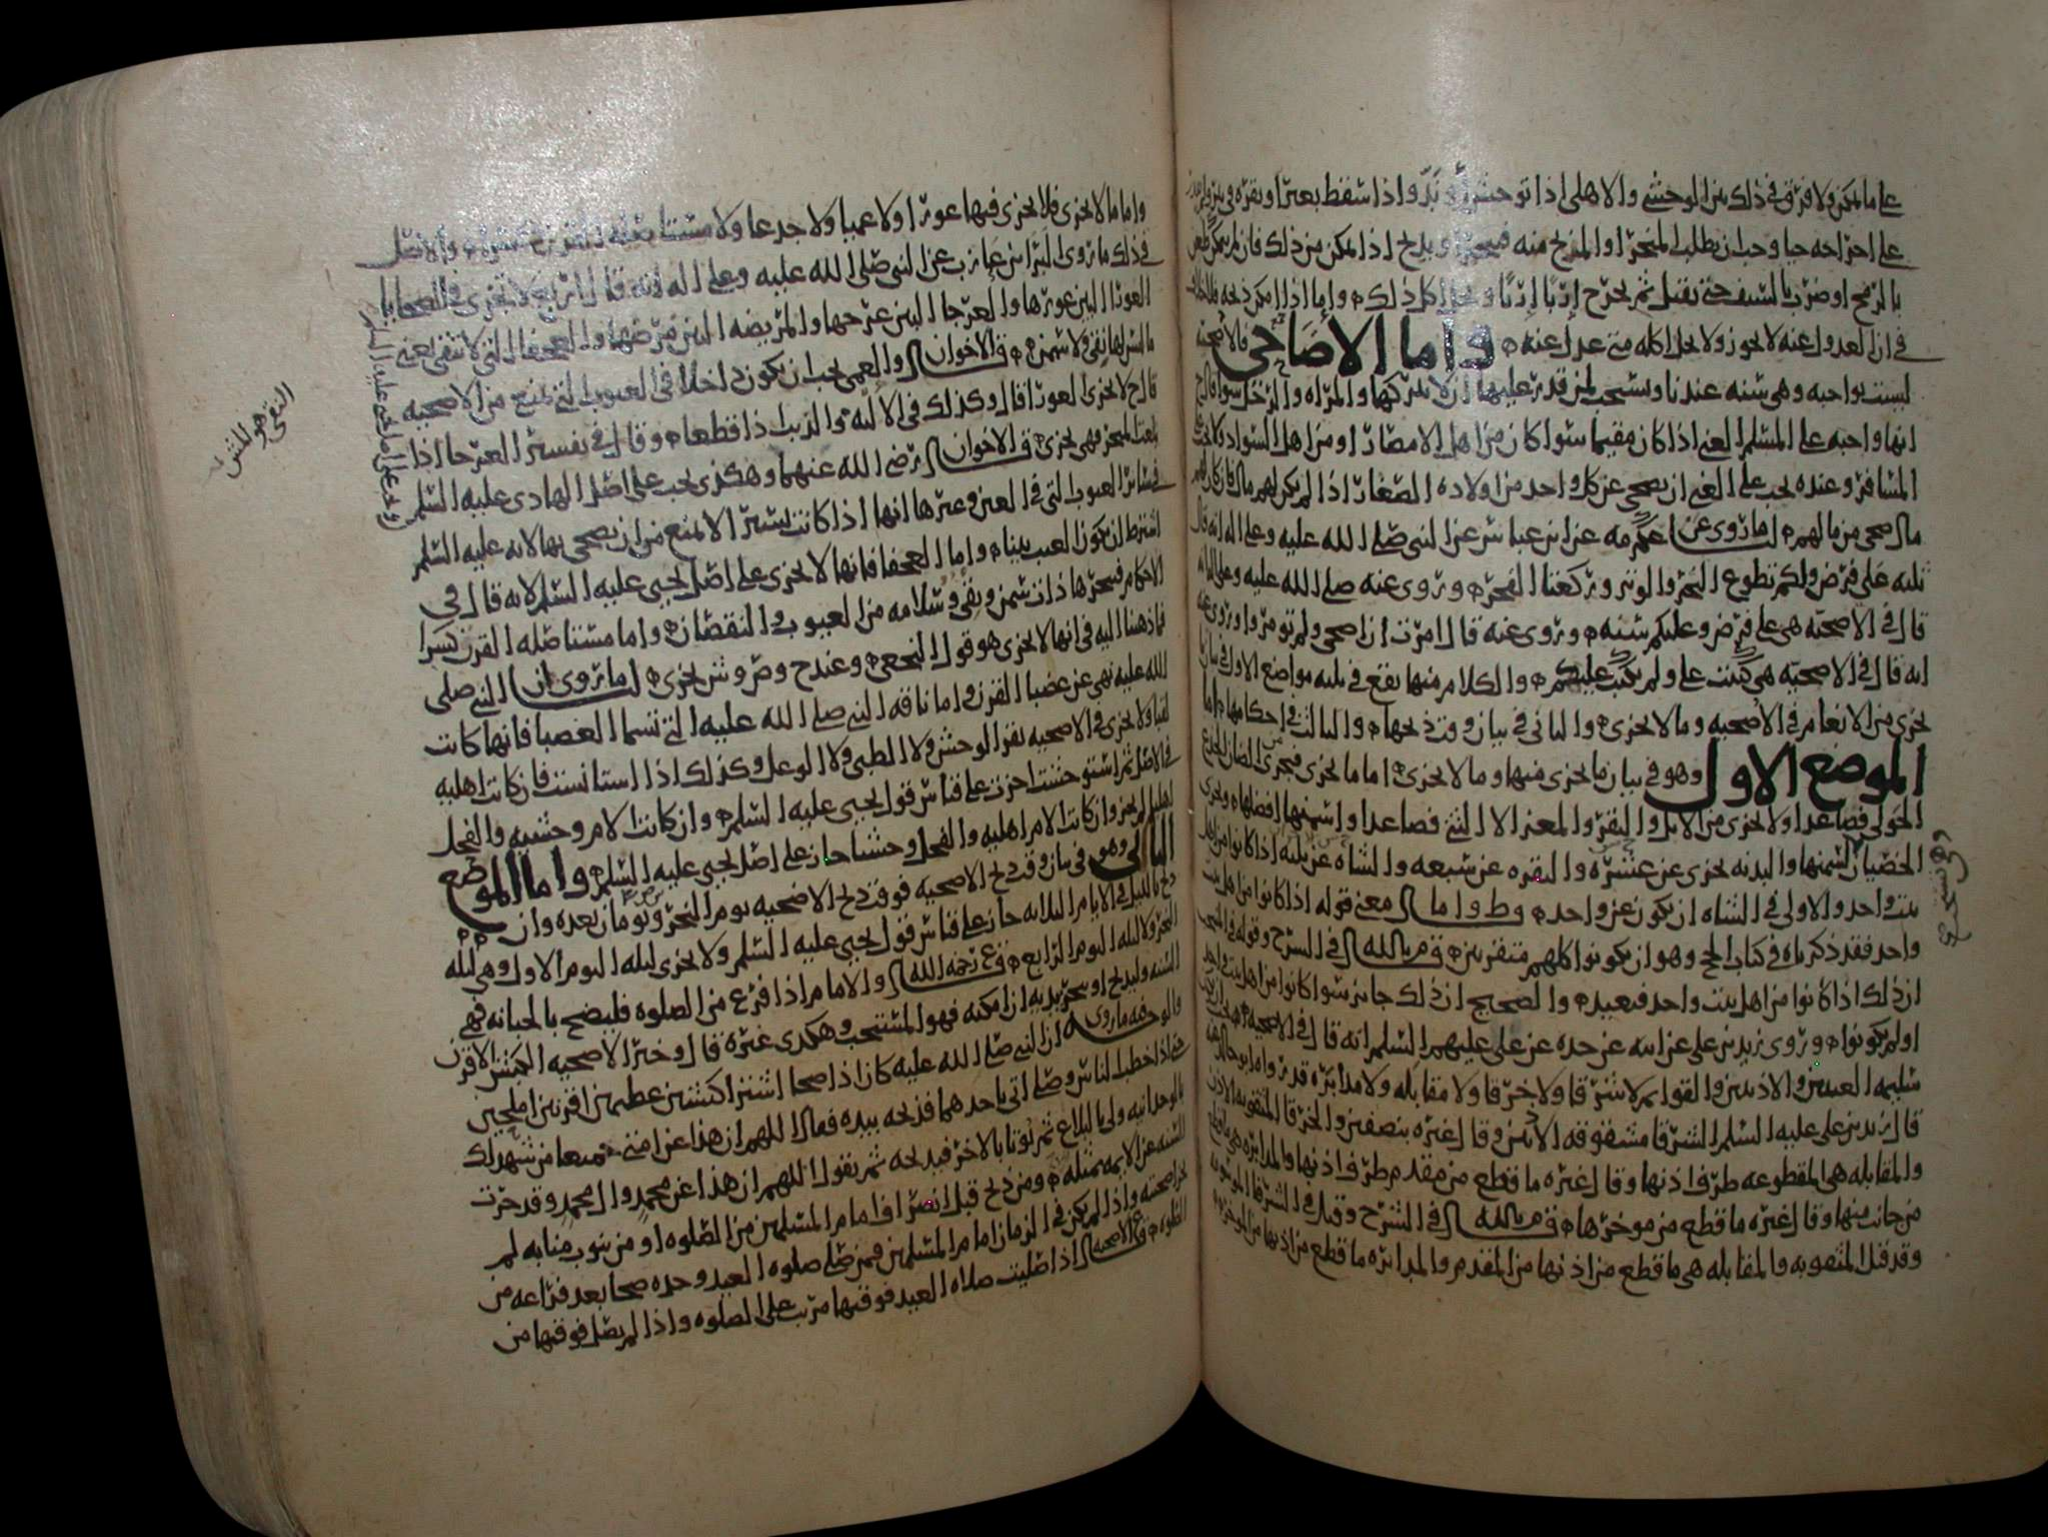 على ما امكن ولا فرق في ذلك بين الوحشي والاهلي اذا توحش او ند واذا سقط بعير او بقره في بير
على اخراجه حيا وجب ان يطلب المنحر او المذبح منه فينحر او يذبح اذا امكن من ذلك فان لم يمكن طعن
بالرمح او ضرب بالسيف حتى يقتل ثم يخرج إربًا إربًا ويحل اكل ذلك واما اذا امكن ذبحه
في ان العدول عنه لا يجوز ولا يحل اكله متى عدل عنه واما الاضاحي فالاضحيه
ليست بواجبه وهي سنه عندنا ويستحب لمن قدر عليها ان لا يتركها والمراه والرجل سوا
انها واجبه على المسلم الغني اذا كان مقيما سوا كان من اهل الامصار او من اهل السواد
المسافر وعنده يجب على الغني ان يضحي عن كل واحد من اولاده الصغار اذا لم يكن لهم مال فان كان لهم
مال ضحى من مالهم لما روي عن عكرمه عن ابن عباس عن النبي صلى الله عليه وعلى اله انه قال
ثلثه علي فرض ولكم تطوع النحر والوتر وركعتا الفجر وروي عنه صلى الله عليه وعلى اله انه
قال في الاضحيه هي علي فرض وعليكم سنه وروي عنه قال امرت ان اضحي ولم تومروا وروي عنه
انه قال في الاضحيه هي كتبت علي ولم تكتب عليكم والكلام منها يقع في ثلثه مواضع الاول في بيان ما
يجزي من الانعام في الاضحيه وما لا يجزي والثاني في بيان وقت ذبحها والثالث في احكامها اما
الموضع الاول وهو في بيان ما يجزي منها وما لا يجزي اما ما يجزي فيجزي من الضان الجذع
الحولي فصاعدا ولا يجزي من الابل والبقر والمعز الا الثني فصاعدا واسمنها افضلها ويجزي
الخصيان لسمنها والبدنه يجزي عن عشره والبقره عن سبعه والشاه عن ثلثه اذا كانوا من اهل
بيت واحد والاولى في الشاه ان يكون عن واحد وط واما معنى قوله اذا كانوا من اهل بيت
واحد فقد ذكرناه في كتاب الحج وهو ان يكونوا كلهم متقربين ق م بالله في الشرح وقوله
ان ذلك اذا كانوا من اهل بيت واحد فبعيد والصحيح ان ذلك جايز سوا كانوا من اهل بيت واحد
او لم يكونوا وروى زيد بن علي عن ابيه عن جده عن علي عليهم السلم انه قال في الاضحيه
سليمه العينين والاذنين والقوايم لا شرقا ولا خرقا ولا مقابله ولا مدابره
قال زيد بن علي عليه السلم الشرقا مشقوقه الاذن وقال غيره بنصفين والخرقا المثقوبه الاذن
والمقابله هي المقطوعه طرف اذنها وقال غيره ما قطع من مقدم طرف اذنها والمدابره
من جانب منها وقال غيره ما قطع من موخرها ق م بالله في الشرح وقيل في الشرقا
وقد قيل المثقوبه والمقابله هي ما قطع من اذنها من المقدم والمدابره ما قطع من اذنها من
واما ما لا يجزي فلا يجزي فيها عورا ولا عميا ولا جدعا ولا مستاصله القرن والاصل
في ذلك ما روى البرا بن عازب عن النبي صلى الله عليه وعلى اله انه قال اربع لا تجزي في الضحايا
العورا البين عورها والعرجا البين عرجها والمريضه البين مرضها والعجفا التي لا تنقى يعني
ما ليس لها نقي ولا سمن ق الاخوان والعمى يجب ان يكون داخلا في العيوب التي تمنع من الاضحيه
قال ح لا يجزي العورا قال وكذلك في الاليه والذنب اذا قطعا وقال في تفسير العرجا اذا
بلغت المنحر فهي يجزي ق الاخوان رضي الله عنهما وهكذى يجب على اصل الهادي عليه السلم
في ساير العيوب التي في العين وغيرها انها اذا كانت يسير الا تمنع من ان يضحي بها لانه عليه السلم
اشترط ان يكون العيب بينا واما العجفا فانها لا يجزي على اصل يحيى عليه السلم لانه قال في
الاحكام فينحرها ذات سمن ونقي وسلامه من العيوب والنقصان واما مستاصله القرن كسرا
فما ذهبنا اليه في انها لا يجزي هو قول النخعي وعند ح وص وش يجزي لما روي ان النبي صلى
الله عليه نهى عن عضبا القرن واما ناقه النبي صلى الله عليه التي تسما العضبا فانها كانت
لقبا ولا يجزي في الاضحيه بقر الوحش ولا الظبي ولا الوعل وكذلك اذا استانست فان كانت اهليه
في الاصل ثم استوحشت اجزت على قياس قول يحيى عليه السلم وان كانت الام وحشيه والفحل
اهليا لم يجز وان كانت الام اهليه والفحل وحشيا جاز على اصل يحيى عليه السلم واما الموضع
الثاني وهو في بيان وقت ذبح الاضحيه فوقت ذبح الاضحيه يوم النحر ويومان بعده وان
ذبح بالليل في الايام الثلاثه جاز على قياس قول يحيى عليه السلم ولا يجزي ليله اليوم الاول وهي ليله
النحر ولا ليله اليوم الرابع ق ع رحمه الله والامام اذا فرغ من الصلوه فليضح بالجبانه فهي
السنه وليذبح او ينحر بيديه ان امكنه فهو المستحب وهكذى غيره قال وخير الاضحيه الكبش الاقرن
والوجه فيه ما روي ان النبي صلى الله عليه كان اذا ضحا اشترا كبشين عظيمين اقرنين املحين
حتى اذا خطب الناس وصلى اتي باحدهما فذبحه بيده فقال اللهم ان هذا عن امتي جميعا من شهد لك
بالوحدانيه ولي بالبلاغ ثم يوتا بالاخر فيذبحه ثم يقول اللهم ان هذا عن محمد وال محمد وقد جرت
السنه عن الايمه بمثله ومن ذبح قبل انصراف امام المسلمين من الصلوه او من ينوب منابه لم
يجز اضحيته واذا لم يكن في الزمان امام المسلمين فمن صلى صلوه العيد وحده ضحا بعد فراغه من
الصلوه ق الاضحيه اذا صليت صلاه العيد فوقتها مرتب على الصلوه واذا لم يصل فوقتها من
النقي هو المش